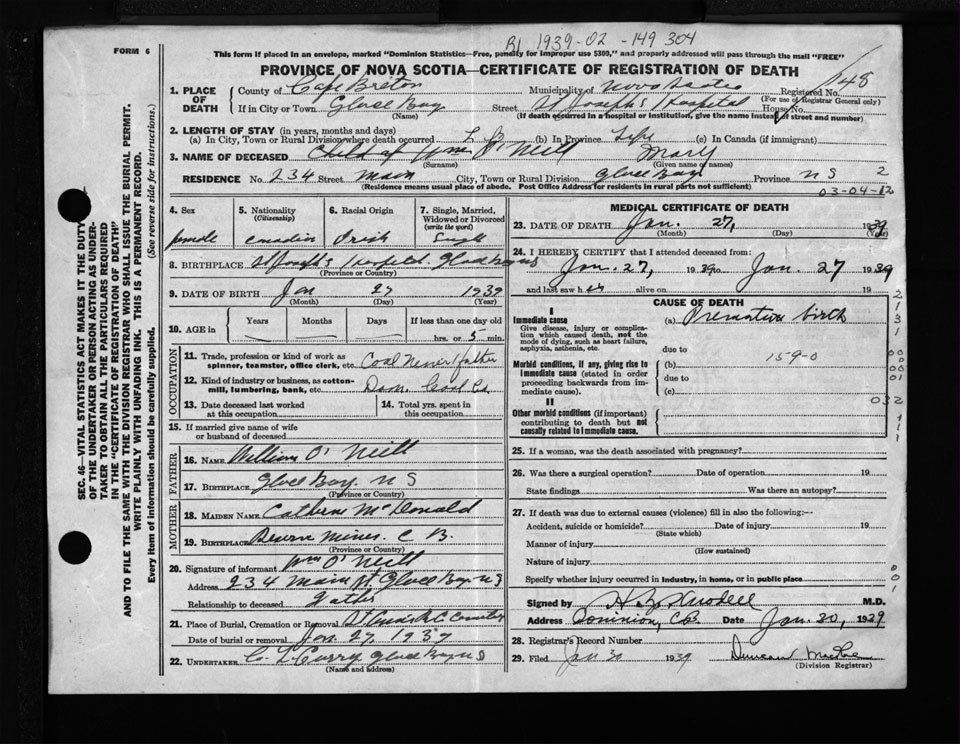 FORM 6
B1 1939-02-149304
This form if placed in an envelope, marked "Dominion Statistics—Free, penalty for improper use $300," and properly addressed will pass through the mail "FREE"
PROVINCE OF NOVA SCOTIA—CERTIFICATE OF REGISTRATION OF DEATH
1. PLACE OF DEATH
County of Cape Breton Municipality of Nova Scotia Registered No. 148
(For use of Registrar General only)
If in City or Town Glace Bay Street St Joseph's Hospital House No.
(Name) (If death occurred in a hospital or institution, give the name instead of street and number)
2. LENGTH OF STAY (in years, months and days)
(a) In City, Town or Rural Division where death occurred (b) In Province Life (c) In Canada (if immigrant)
3. NAME OF DECEASED Child of Wm O'Neill Mary
(Surname) (Given name or names)
RESIDENCE No. 234 Street Main City, Town or Rural Division Glace Bay Province N S 2
(Residence means usual place of abode. Post Office Address for residents in rural parts not sufficient)
03-04-12
4. Sex female
5. Nationality (Citizenship) Canadian
6. Racial Origin Irish
7. Single, Married, Widowed or Divorced (write the word) Single
8. BIRTHPLACE St Joseph's Hospital Glace Bay NS
(Province or Country)
9. DATE OF BIRTH Jan 27 1939
(Month) (Day) (Year)
10. AGE in Years Months Days If less than one day old
hrs. or 5 min.
OCCUPATION
11. Trade, profession or kind of work as spinner, teamster, office clerk, etc. Coal Miner/father
12. Kind of industry or business, as cotton-mill, lumbering, bank, etc. Dom. Coal Co
13. Date deceased last worked at this occupation
14. Total yrs. spent in this occupation
15. If married give name of wife or husband of deceased
FATHER
16. NAME William O'Neill
17. BIRTHPLACE Glace Bay N S
(Province or Country)
MOTHER
18. MAIDEN NAME Catherine McDonald
19. BIRTHPLACE Mines. C B.
(Province or Country)
20. Signature of informant Wm O'Neill
Address 234 Main St. Glace Bay NS
Relationship to deceased Father
21. Place of Burial, Cremation or Removal
Date of burial or removal Jan. 27 1939
22. UNDERTAKER Curry Glace Bay NS
MEDICAL CERTIFICATE OF DEATH
23. DATE OF DEATH Jan. 27, 1939
(Month) (Day) (Year)
24. I HEREBY CERTIFY that I attended deceased from:
Jan. 27, 1939 to Jan. 27 1939
and last saw her alive on 19
CAUSE OF DEATH
I
Immediate cause (a) Premature birth
Give disease, injury or complication which caused death, not the mode of dying, such as heart failure, asphyxia, asthenia, etc.
due to
Morbid conditions, if any, giving rise to immediate cause (stated in order proceeding backwards from immediate cause).
(b) 159-0
due to
(c)
II
Other morbid conditions (if important) contributing to death but not causally related to immediate cause.
032
25. If a woman, was the death associated with pregnancy?
26. Was there a surgical operation? Date of operation 19
State findings Was there an autopsy?
27. If death was due to external causes (violence) fill in also the following:—
Accident, suicide or homicide? Date of injury 19
(State which)
Manner of injury
(How sustained)
Nature of injury
Specify whether injury occurred in industry, in home, or in public place
Signed by M.D.
Address Dominion, C.B. Date Jan. 30, 1939
28. Registrar's Record Number
29. Filed Jan 30 1939 Duncan
(Division Registrar)
SEC. 46—VITAL STATISTICS ACT MAKES IT THE DUTY
OF THE UNDERTAKER OR PERSON ACTING AS UNDER-
TAKER TO OBTAIN ALL THE PARTICULARS REQUIRED
IN THE "CERTIFICATE OF REGISTRATION OF DEATH"
AND TO FILE THE SAME WITH THE DIVISION REGISTRAR WHO SHALL ISSUE THE BURIAL PERMIT.
WRITE PLAINLY WITH UNFADING INK. THIS IS A PERMANENT RECORD.
Every item of information should be carefully supplied. (See reverse side for instructions.)